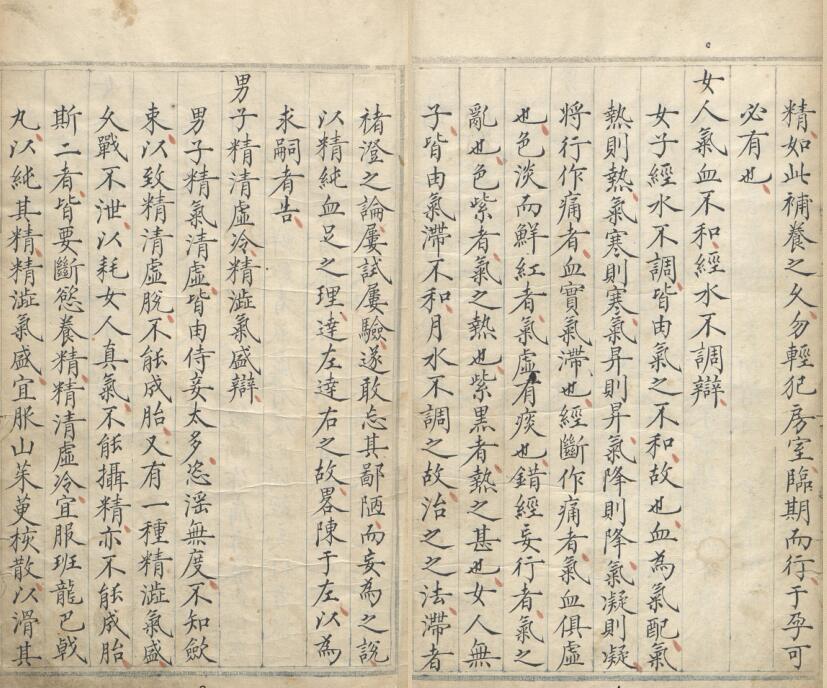 精如此補養之久勿輕犯房室臨期而行于孕可
必有也
女人氣血不和經水不調辯
女子經水不調皆由氣之不和故也血為氣配氣
熱則熱氣寒則寒氣昇則昇氣降則降氣凝則凝
將行作痛者血實氣滯也經斷作痛者氣血俱虛
也色淡而鮮紅者氣虛有痰也錯經妄行者氣之
亂也色紫者氣之熱也紫黑者熱之甚也女人無
子皆由氣滯不和月水不調之故治之之法滯者
褚澄之論屢試屢驗遂敢忘其鄙陋而妄為之說
以精純血足之理達左達右之故畧陳于左以為
求嗣者告
男子精清虛冷精澁氣盛辯
男子精氣清虛皆由侍妾太多恣滛無度不知歛
束以致精清虛脫不能成胎又有一種精澁氣盛
久戰不泄以耗女人真氣不能攝精亦不能成胎
斯二者皆要斷慾養精精清虛冷宜服班龍巴戟
丸以純其精精澁氣盛宜服山茱萸核散以滑其